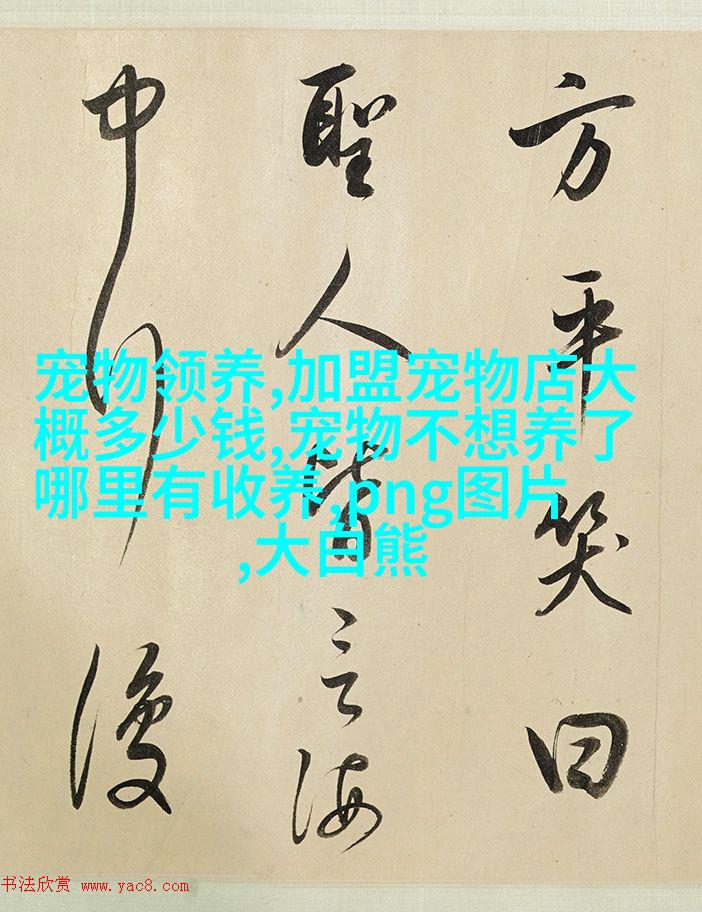 方平笑曰
聖人皆言海
中行復
宠物领养,加盟宠物店大
概多少钱,宠物不想养了
哪里有收养,png图片
,大白熊
书法欣赏 www.yac8.com